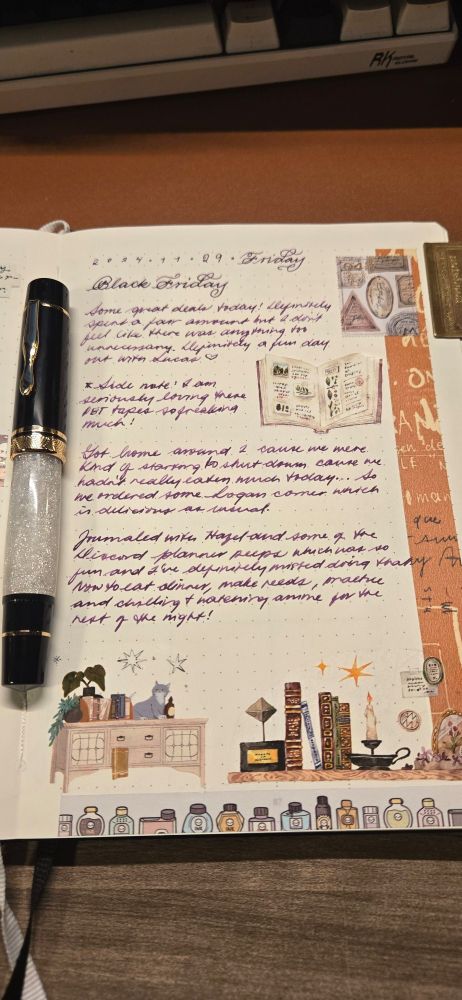 RK ROYAL KLUDGE
2024.11.29.Friday
Black Friday
Some great deals today! Definitely
spent a fair amount but I don't
feel like there was anything too
unnecessary. Definitely a fun day
out with Lucas ♡
* Side note! I am
seriously loving these
PET tapes so freaking
much!
Got home around 2 cause we were
kind of starting to shut down cause we
hadn't really eaten much today... So
we ordered some Logan corner which
is delicious as usual.
Journaled with Hazel and some of the
Discord planner peeps which was so
fun and I've definitely missed doing that.
Now to eat dinner, make reeds, practice
and chilling + watching anime for the
rest of the night!
que